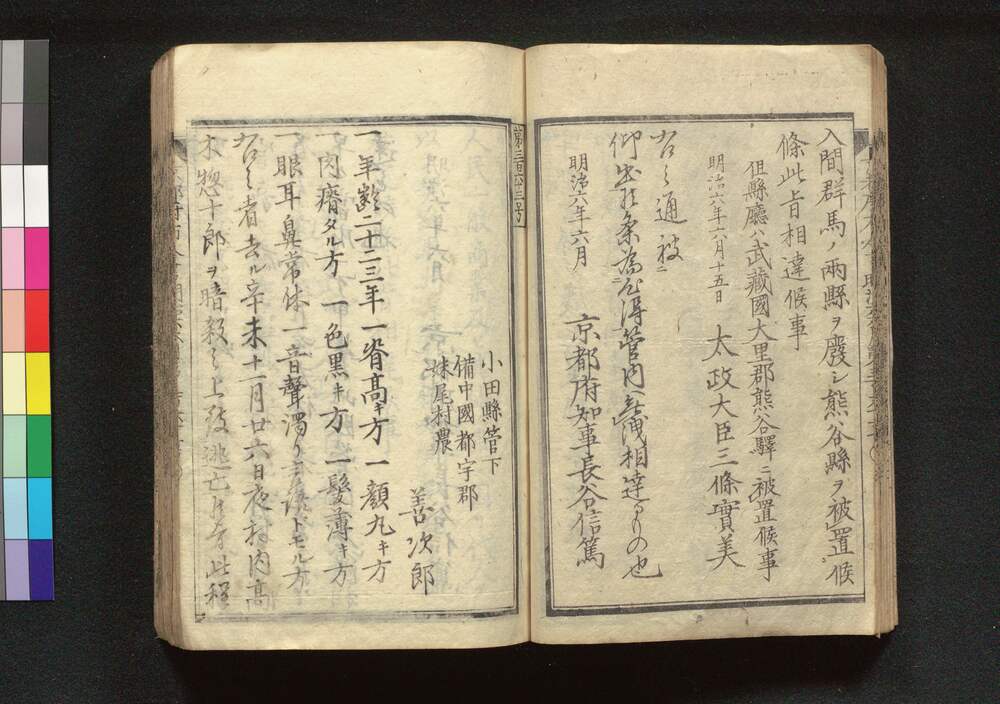 入間群馬ノ両縣ヲ廢シ熊谷縣ヲ被置候
條此旨相達候事
但縣廳ハ武藏國大里郡熊谷驛ニ被置候事
明治六年六月十五日
太政大臣三條實美
右之通被
仰出候条為心得管内無洩相達るもの也
明治六年六月
京都府知事長谷信篤
第三百廿三号
小田縣管下
備中國都宇郡
妹尾村農
善次郎
一年齢二十二三年一脊高キ方一顔丸キ方
一肉瘠タル方一色黒キ方一髪薄キ方
一眼耳鼻常体一音聲濁り言语ドモル方
右之者去ル辛未十一月廿六日夜村内高
木惣十郎ヲ暗殺之上致逃亡此程